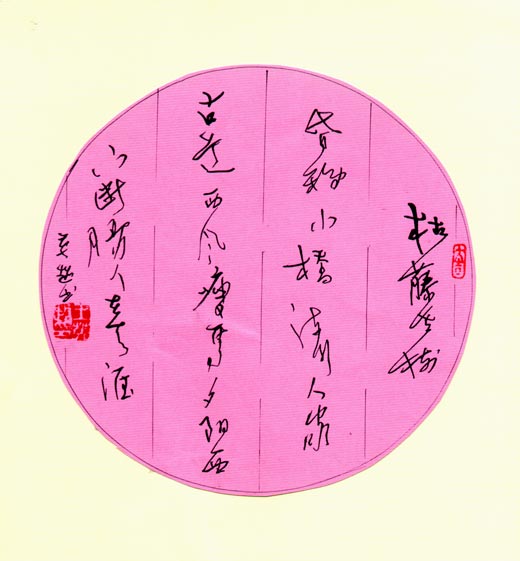 枯藤老树
昏鸦小橋流水人家
古道西风瘦马夕阳西
下断肠人在天涯